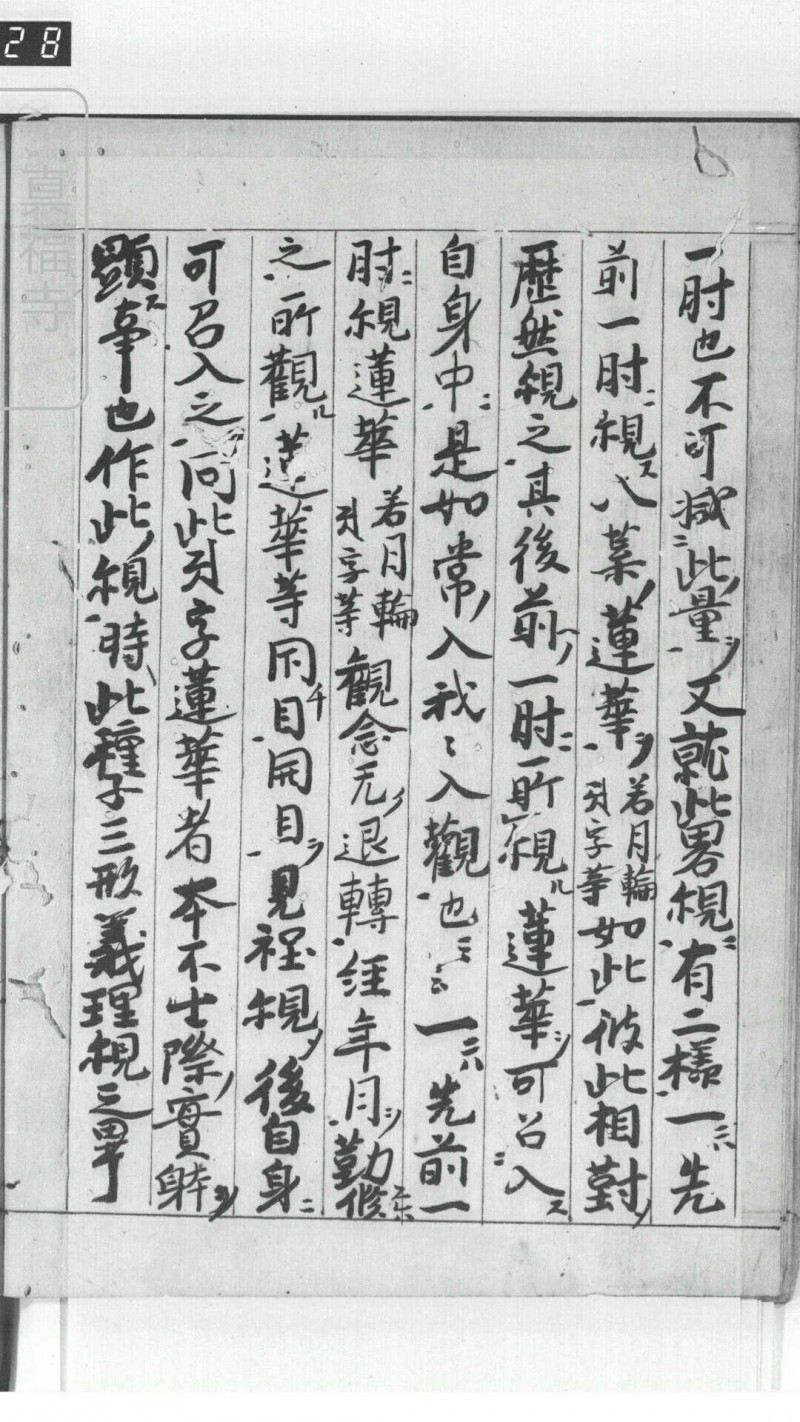 一肘也不可減ニ此ノ量ヲ又就此畧観ニ有二様一ニハ先
前一肘ニ観ス八葉ノ蓮華ヲ若月輪𑖀字等如此彼此相對ノ
歴然観之其後前ノ一肘ニ所観ル蓮華ヲ可召入ス
自身中ニ是如常ノ入我々入觀也云云一ニハ先前一
肘ニ観蓮華若月輪𑖀字等觀念无ク退轉経年月ヲ勤修
之所觀ル蓮華等閇チ目開目ヲ見程観ノ後自身ニ
可召入之向此𑖀字蓮華者本不生際ノ實躰ヲ
顕ス事也作此ノ観時此種子三形義理観之畢
28
真福寺